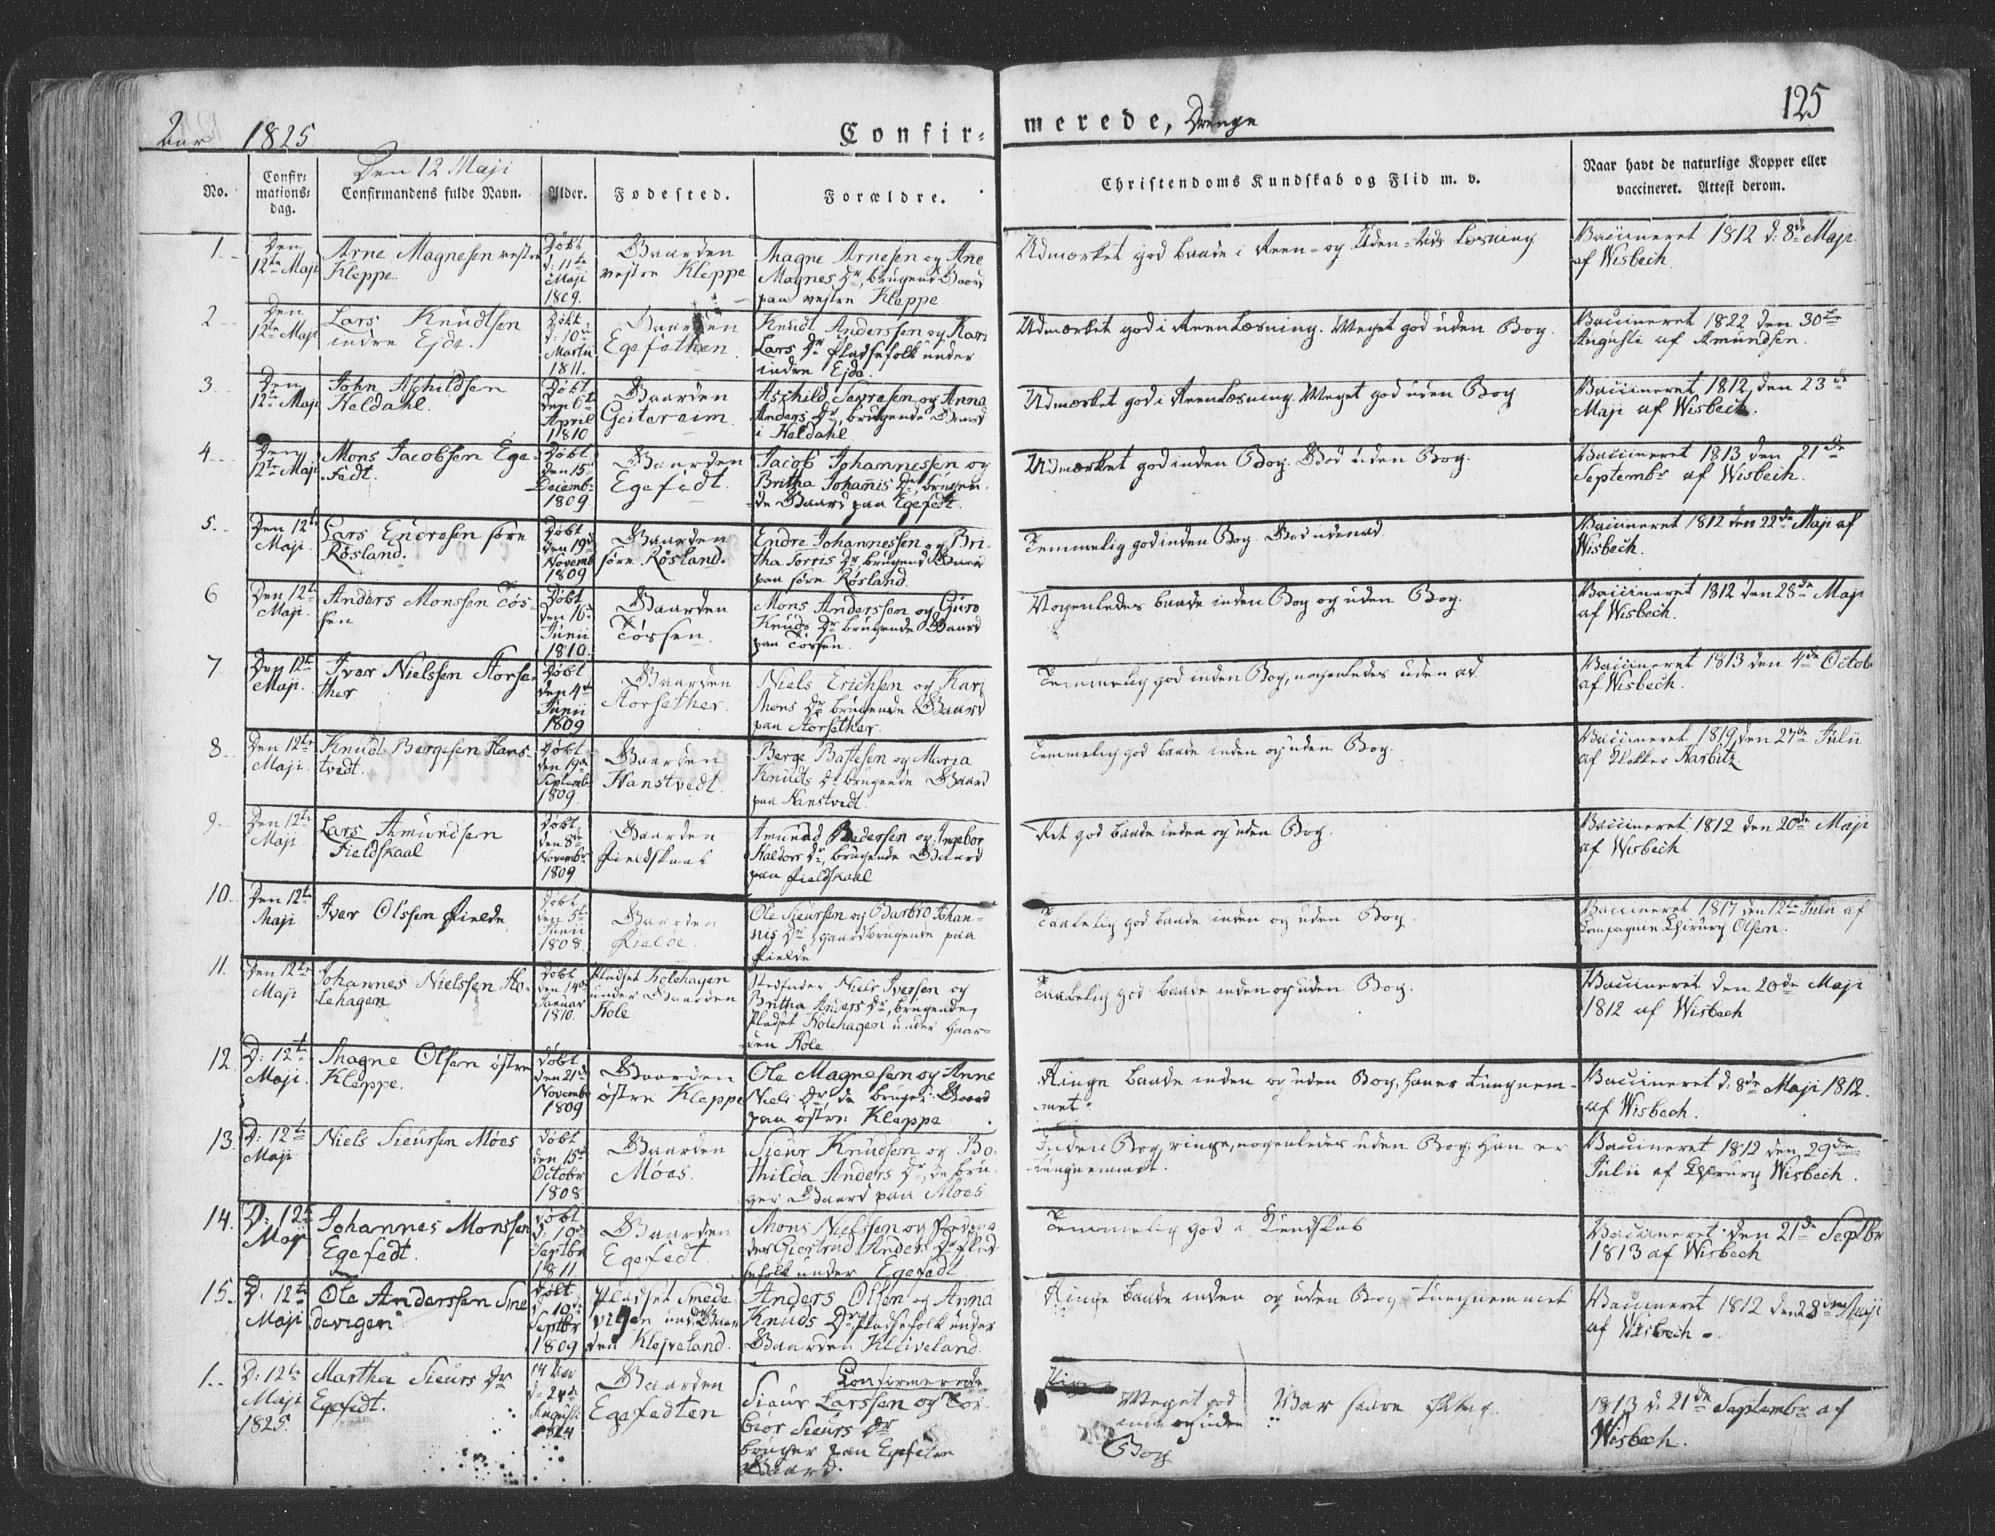 125
Aar 1825
Confirmerede, Drenge
Den 12 Maji
No.
Confirmations-dag.
Confirmandens fulde Navn.
Alder.
Fødested.
Forældre.
Christendoms Kundskab og Flid m. v.
Naar havt de naturlige Kopper eller
vaccineret. Attest derom.
1.
Den
12te Maji
Arne Magnesen vestre
Kleppe.
Døbt
d: 11te
Maji
1809.
Gaarden
vestre Kleppe
Magne Arnesen og Ane
Magnes Dr, brugend Gaard
paa vestre Kleppe
Udmærket god baade i Reen- og Uden-ads Læsning
Vaccineret 1812 d: 8de Maji
af Wisbech.
2
Den
12te Maji
Lars Knudtsen
indre Ejde.
Døbt
d: 10de
Martii
1811.
Gaarden
Egefethen.
Knudt Anderssen og Kari
Lars Dr Pladsefolk under
indre Ejde.
Udmærket god i ReenLæsning. Meget god uden Bog.
Vaccineret 1822 den 30te
Augusti af Amundsen.
3
Den
12te Maji
John Aschildsen
Heldahl.
Døbt
den 6te
April
1810
Gaarden
Geitereim.
Aschild Sevresen og Anna
Anders Dr, brugende Gaard
i Heldahl.
Udmærket god i ReenLæsning. Meget god uden Bog
Vaccineret 1812, den 23de
Maji af Wisbech.
4.
Den
12te Maji
Mons Jacobsen Ege-
fedt.
Døbt
den 15de
Decembr
1809
Gaarden
Egefedt.
Jacob Johannessen og
Britha Johanis Dr, brugen-
de Gaard paa Egefedt.
Udmærket god inden Bog. God uden Bog.
Vaccineret 1813 den 21de
Septembr af Wisbech.
5.
Den 12te
Maji.
Lars Endresen søre
Røsland.
Døbt
den 19de
Novemb
1809
Gaarden
søre Røsland.
Endre Johannessen og Bri-
tha Torris Dr brugend Gaard
paa søre Røsland.
Temmelig god inden Bog. God udenad
Vaccineret 1812 den 22de Maji af
Wisbech.
6
Den 12te
Maji.
Anders Monssen Tøs-
sen
Døbt
den 16de
Junii
1810.
Gaarden
Tøssen.
Mons Anderssen og Guro
Knuds Dr brugende Gaard
paa Tøssen.
Nogenledes baade inden Bog og uden Bog.
Vaccineret 1812 den 28de Maji
af Wisbech.
7
Den 12te
Maji.
Iver Nielssen Storse-
ther
Døbt
den 4de
Junii
1809
Gaarden
Storsether.
Niels Erichsen og Kari
Mons Dr brugende Gaard
paa Storsether.
Temmelig god inden Bog, nogenledes uden ad
Vaccineret 1813 den 4de Octob
af Wisbech.
8.
Den 12te
Maji
Knud Bergesen Hans-
tvedt.
Døbt
den 19de
Septembr
1809.
Gaarden
Hanstvedt.
Berge Battesen og Maria
Knuds Dr brugende Gaard
paa Hanstvedt.
Temmelig god baade inden og uden Bog.
Vaccineret 1819, den 27de Julii
af Klokker Harbitz.
9.
Den 12te
Maji
Lars Amundsen
Fieldskaal
Døbt
den 8de
Novembr
1809
Gaarden
Fieldskaal
Amund Pedersen og Ingebor
Haldors Dr, brugende Gaard
paa Fieldskaal
Ret god baade inden og uden Bog.
Vaccineret 1812 den 20de Maji
af Wisbech
10.
Den 12te
Maji
Iver Olssen Fielde
Døbt
den 5te
Junii
1808.
Gaarden
Fielde.
Ole Sieursen og Barbro Johan-
nis Dr, gaardbrugende paa
Fielde
Taalelig god baade inden og uden Bog.
Vaccineret 1817 den 12te Julii af
Compagnie Chirurg Olsen.
11.
Den 12te
Maji
Johannes Nielssen Ho-
lehagen.
Døbt
den 14de
Januar
1810.
Pladset Holehagen
under Gaarden
Hole
Stedfader Niels Iverssen og
Britha Anders Dr, brugende
Pladset Holehagen under Gaar-
den Hole
Taalelig god baade inden og uden Bog.
Vaccineret den 20de Maji
1812 af Wisbech
12.
D: 12te
Maji.
Magne Olsen østre
Kleppe.
Døbt
den 21de
Novembr
1809
Gaarden
østre Kleppe
Ole Magnesen og Anne
Niels Dr, de bruger Gaard
paa østre Kleppe
Ringe baade inden og uden Bog, haver tungnem-
met.
Vaccineret d: 8de Maji 1812.
af Wisbech.
13.
D: 12te
Maji
Niels Sieursen Møes
Døbt
den 15de
Octobr
1808
Gaarden
Møes.
Sieur Knudsen og Bo-
thilda Anders Dr, de bru-
ger Gaard paa Moes
Inden Bog ringe, nogenledes uden Bog. Han er
tungnemmet.
Vaccineret 1812 den 29de
Julii af Chirurg Wisbech.
14.
D: 12te
Maji
Johannes Monssen
Egefedt.
Døbt
d: 10de
Septbr
1811.
Gaarden
Egefedt.
Mons Nielssen og
Giertrud Anders Dr
under Egefedt
Temmelig god i Kundskab
Vaccineret den 21de Septbr
1813 af Wisbech
15.
D. 12te
Maji
Ole Anderssen Sme
devigen
Døbt
d. 10de
Septbr
1809
Pladset Smede
vigen under Gaar
den Klejveland.
Anders Olsen og Anna
Knuds Dr, Pladsefolk under
Gaarden Kleiveland.
Ringe baade inden og uden Bog. Tungnemmet
Vaccineret 1812 den 28de Maji
af Wisbech.
1.
D: 12te
Maji
1825.
Martha Sieurs Dr
Egefedt.
14 Aar
d. 24de
Augusti
1824
Gaarden
Egefedten
Confirmerede
Sieur Larssen og Tor-
biør Sieurs Dr
bruger paa Egefedten
Gaard.
Meget god
inden og uden
Bog
Var saare flitig.
1813 d: 21de Septembr af
Wisbech.